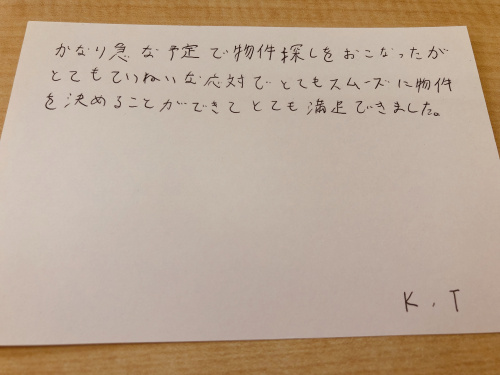 かなり急な予定で物件探しをおこなったが
とてもていねいな応対でとてもスムーズに物件
を決めることができてとても満足できました。
K.T